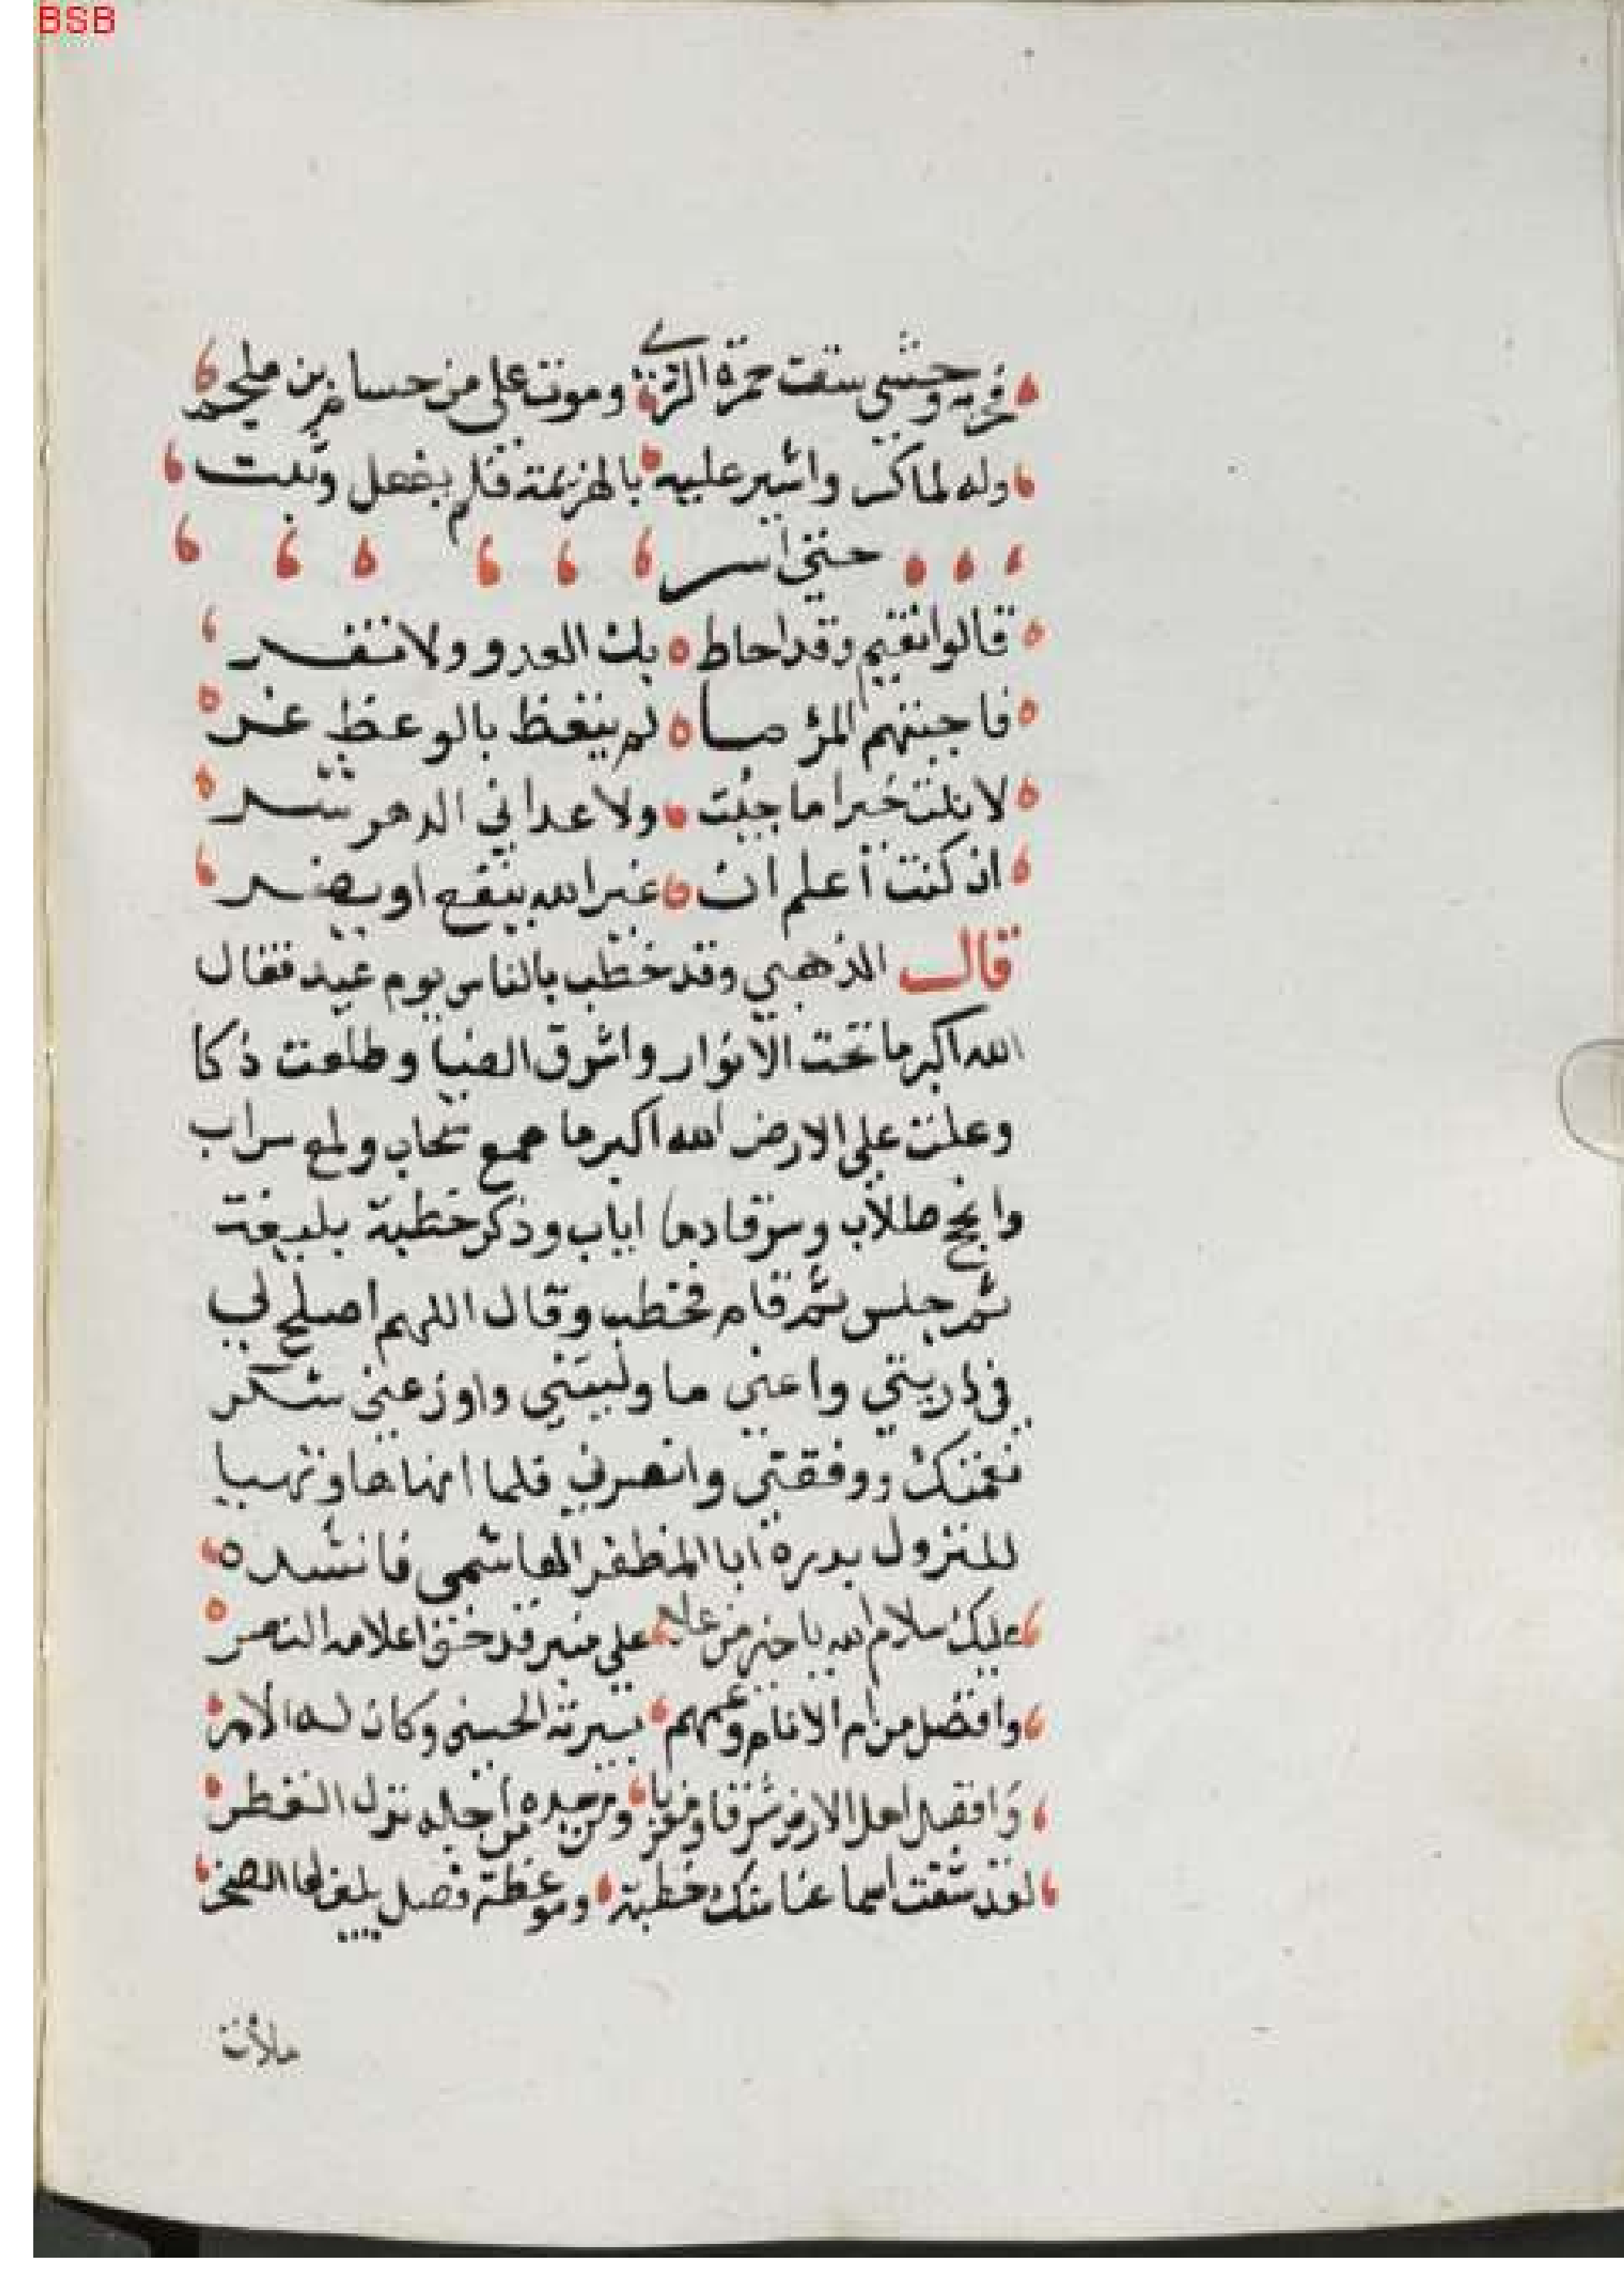 BSB
فحربة وحشي سقت حمزة الردى وموت علي من حسام بن ملجم
وله لما كسر واشير عليه بالهزيمة فلم يفعل وثبت
حتى اسر
قالوا تقيم وقد احاط بك العدو ولا تفر
فاجبتهم المرء ما لم يتعظ بالوعظ غر
لا نلت خيرا ما حييت ولا عداني الدهر شر
اذ كنت أعلم ان غير الله ينفع او يضر
قال الذهبي وقد خطب بالناس يوم عيد فقال
الله اكبر ما نحت الانوار واشرق الضيا وطلعت ذكا
وعلت على الارض الله اكبر ما همع سحاب ولمع سراب
وانجح طلاب وسر قادما اياب وذكر خطبة بليغة
ثم جلس ثم قام فخطب وقال اللهم اصلح لي
في ذريتي واعني ما وليتني واوزعني شكر
نعمتك ووفقني وانصرني فلما انهاها وتهيا
للنزول بدره ابا المظفر الهاشمي فانشده
عليك سلام الله يا خير من علا على منبر قد حف اعلامه النصر
وافضل من ام الانام وعمهم بسيرته الحسنى وكان له الامر
وافضل اهل الارض شرقا ومغربا ومن جده من اجله نزل القطر
لقد شنفت اسماعنا منك خطبة وموعظة فصل يلين لها الصخر
ملأت